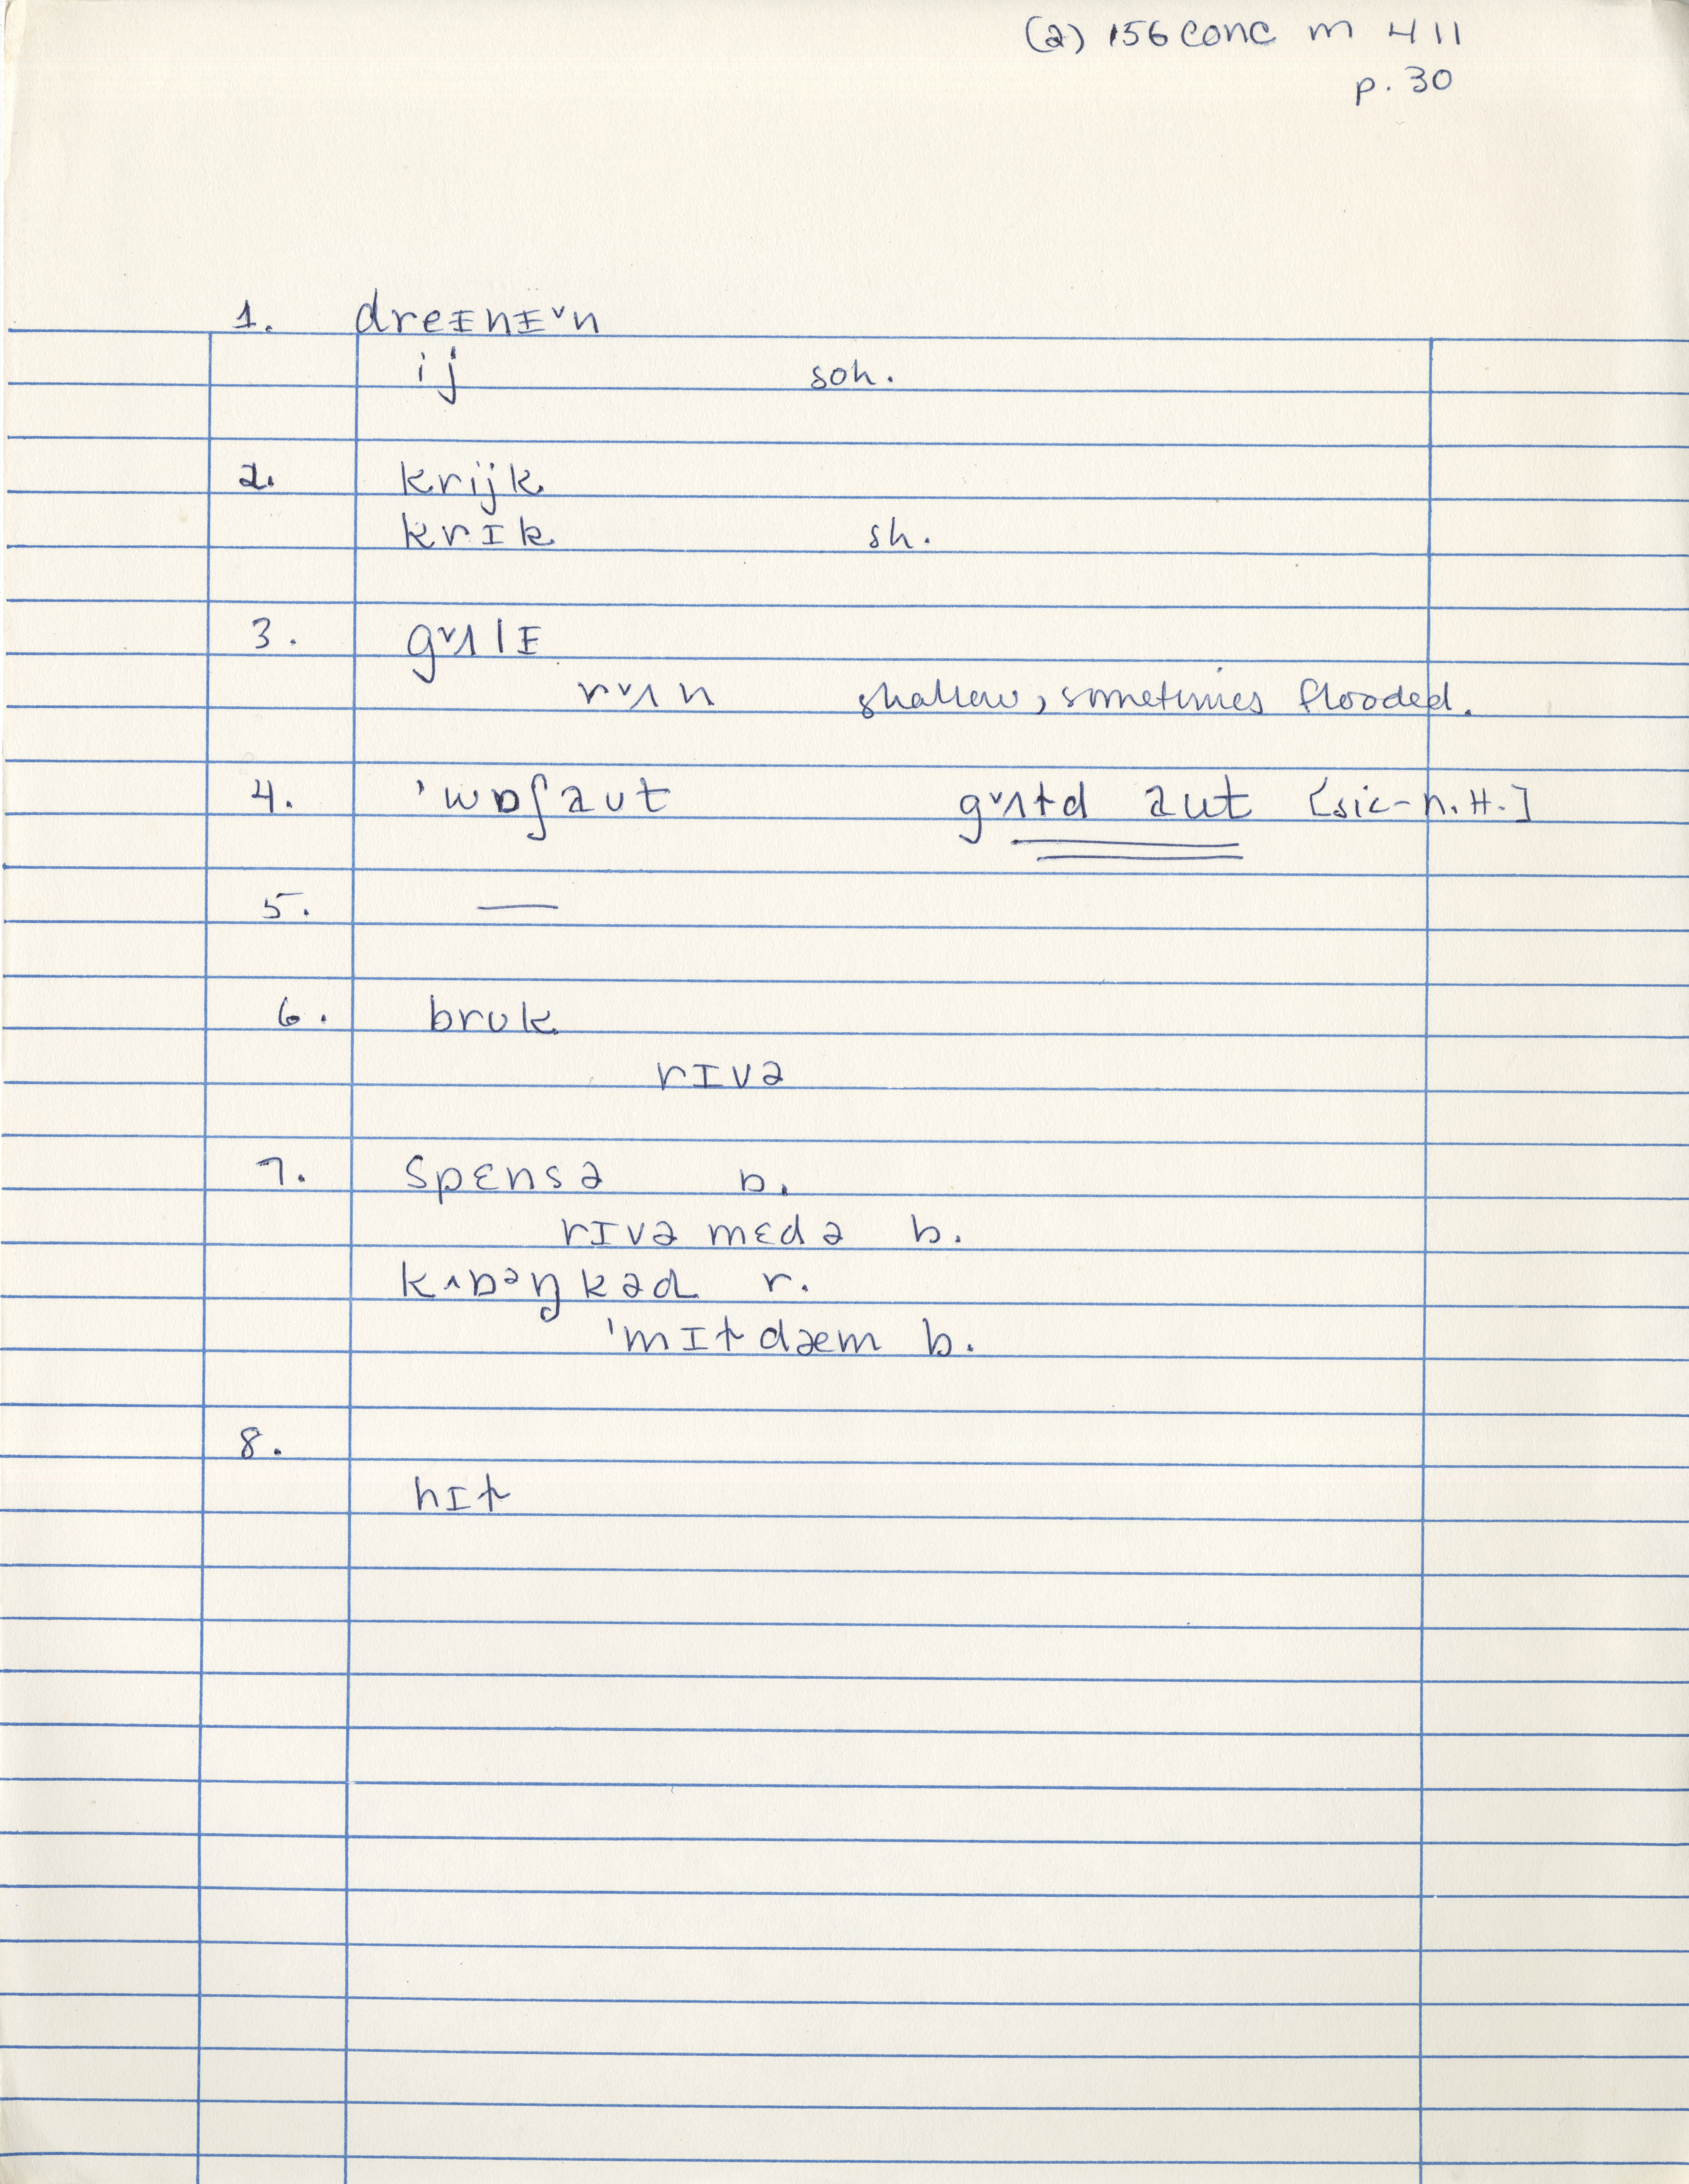 (2) 156 conc m 411
p. 30
1. dreɪnɪ˅n
ij soh.
2. krijk
krɪk sh.
3. g˅ʌlɪ
r˅ʌn shallow, sometimes flooded.
4. 'wɒʃaʊt g˅ʌɫd aʊt [sic-n.H.]
5. —
6. brʊk
rɪvə
7. spɛnsə b.
rɪvə mɛdə b.
kʌbəŋkəd r.
'mɪɫdæm b.
8.
hɪɫ